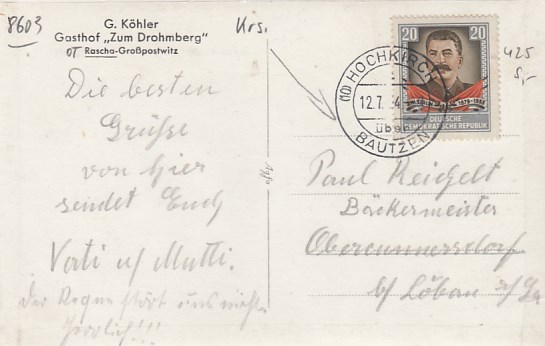 8603
G. Köhler
Gasthof „Zum Drohmberg"
OT Rascha-Großpostwitz
Krs.
Die besten
Grüsse
von hier
sendet Euch
Vati u/ Mutti.
Der Regen stört uns nicht
Herrlich!!!
20 20
1879-1953
DEUTSCHE
DEMOKRATISCHE REPUBLIK
(10) HOCHKIRCH
12.7.
übe
BAUTZEN
425
5,-
Paul Reichelt
Bäckermeister
Obercunnersdorf
b/ Löbau i/Sa